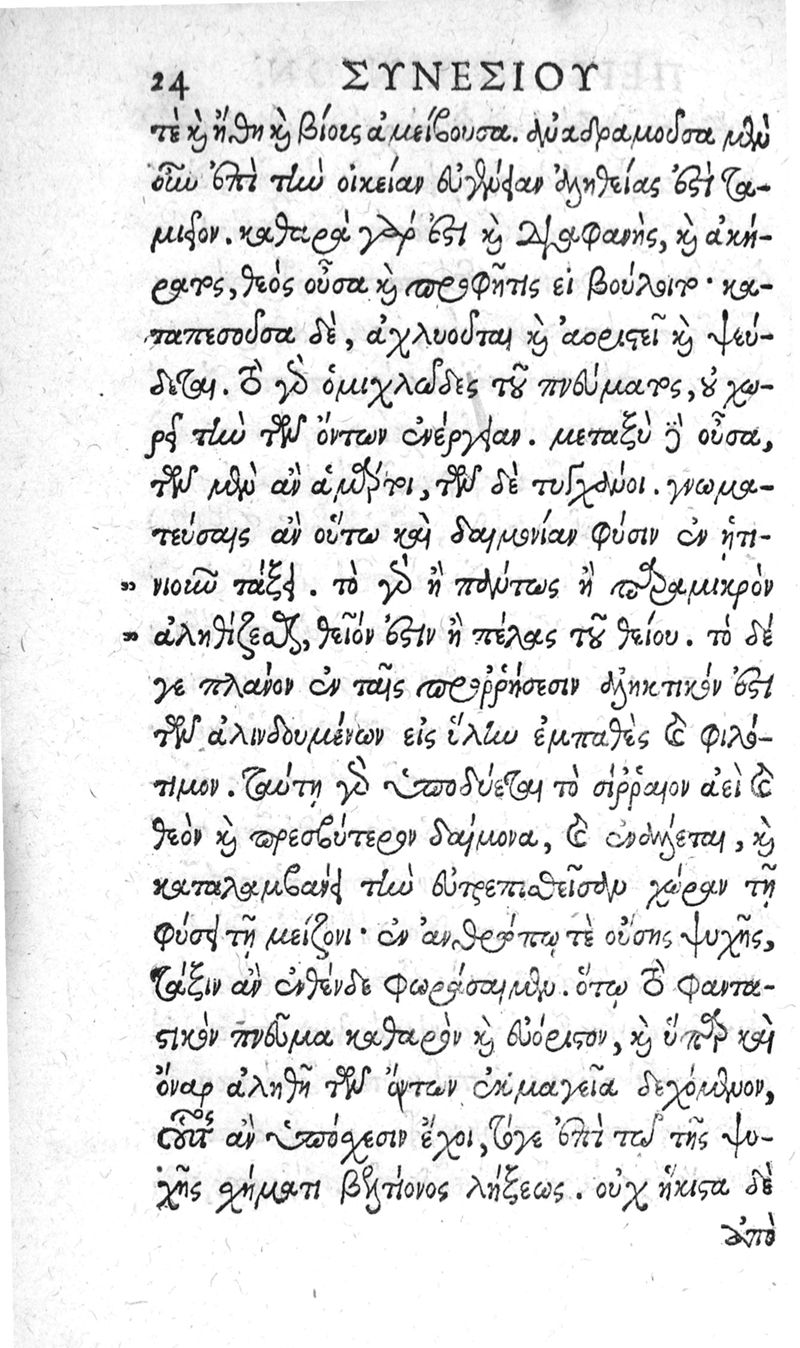 24 ΣΥΝΕΣΙΟΥ
τὲ καὶ ἤθη καὶ βίοις ἀμείβουσα. ἀναδραμοῦσα μὲν
οὖν ἐπὶ τὴν οἰκείαν εὐγένειαν ἀληθείας ἐστὶ τα-
μιεῖον. καθαρὰ γάρ ἐστι καὶ διαφανὴς, καὶ ἀκή-
ρατος, θεὸς οὖσα καὶ προφῆτις εἰ βούλοιτο· κα-
ταπεσοῦσα δὲ, ἀχλυοῦται καὶ ἀοριστεῖ καὶ ψεύ-
δεται. τὸ γὰρ ὁμιχλῶδες τοῦ πνεύματος, οὐ χω-
ρεῖ τὴν τῶν ὄντων ἐνέργειαν. μεταξὺ δὲ οὖσα,
τῶν μὲν ἂν ἁμάρτοι, τῶν δὲ τυγχάνοι. γνωμα-
τεύσαις ἂν οὕτω καὶ δαιμονίαν φύσιν ἐν ᾑτι-
" νιοῦν τάξει. τὸ γὰρ ἢ πάντως ἢ παραμικρὸν
" ἀληθίζεσθαι, θεῖόν ἐστιν ἢ πέλας τοῦ θείου. τὸ δέ
γε πλάνον ἐν ταῖς προῤῥήσεσιν ἀληκτικόν ἐστι
τῶν ἀλινδουμένων εἰς ὕλην ἐμπαθὲς καὶ φιλό-
τιμον. ταύτῃ γὰρ ὑποδύεται τὸ σίῤῥαιον ἀεὶ καὶ
θεὸν καὶ πρεσβύτερον δαίμονα, καὶ ἐνάλλεται, καὶ
καταλαμβάνει τὴν εὐτρεπισθεῖσαν χώραν τῇ
φύσει τῇ μείζονι· ἐν ἀνθρώπῳ τὲ οὔσης ψυχῆς,
τάξιν ἂν ἐνθένδε φωράσαιμεν. ὅτῳ τὸ φαντα-
στικὸν πνεῦμα καθαρὸν καὶ εὐόριστον, καὶ ὕπαρ καὶ
ὄναρ ἀληθῆ τῶν ὄντων ἐκμαγεῖα δεχόμενον,
οὗτος ἂν ὑπόσχεσιν ἔχοι, τόγε ἐπὶ τῷ τῆς ψυ-
χῆς σχήματι βελτίονος λήξεως. οὐχ ἥκιστα δὲ
ἀπὸ